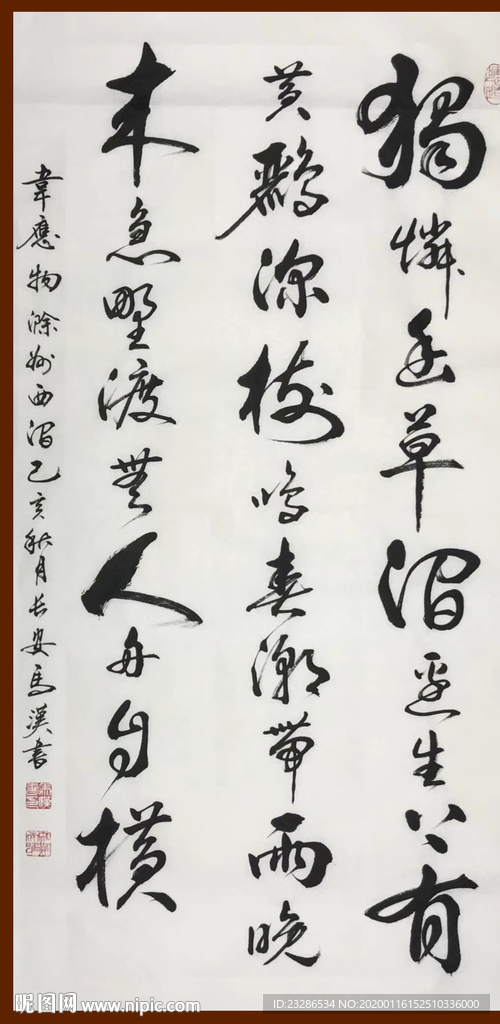 獨憐幽草澗邊生上有
黃鸝深樹鳴春潮帶雨晚
来急野渡無人舟自橫
韋應物滁州西澗己亥秋月長安馬漢書
昵图网 www.nipic.com
ID:23286534 NO:20200116152510336000